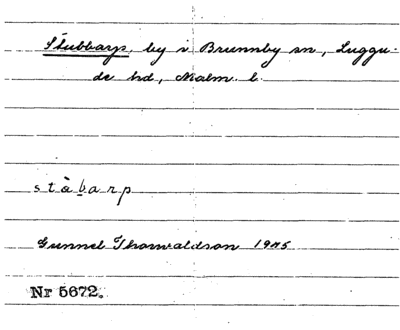 Stubbarp, by i Brunnby sn, Luggu-
de hd, Malm. l.
stàbarp
Gunnel Thorwaldson 1945
Nr 5672.